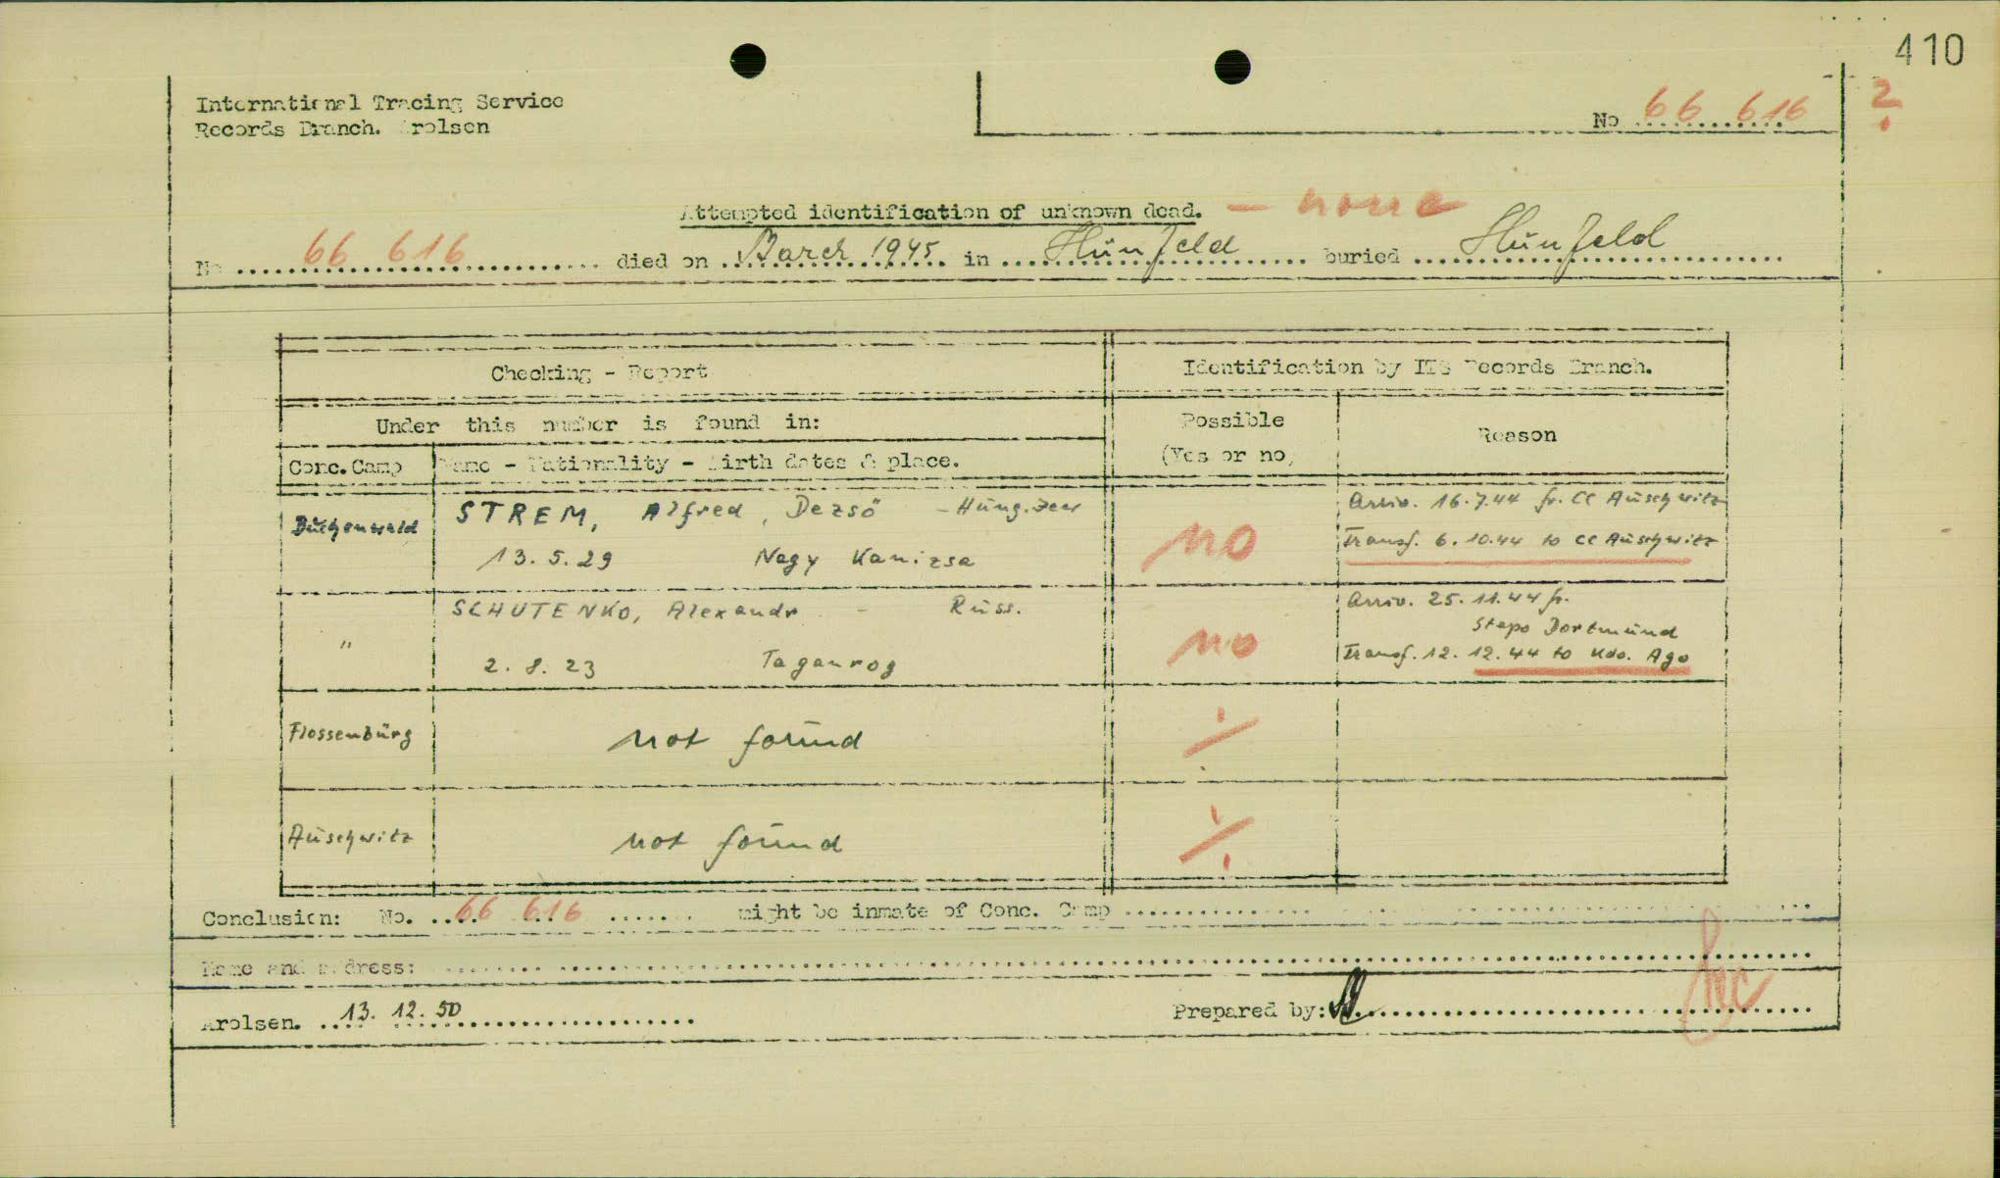 410
International Tracing Service
Records Branch. Arolsen
No 66 616
2.
Attempted identification of unknown dead. – none
No 66 616 died on March 1945 in Hünfeld buried Hünfeld
Checking - Report
Identification by ITS Records Branch.
Under this number is found in:
Possible
(Yes or no)
Reason
Conc. Camp
Name - Nationality - Birth dates & place.
Buchenwald
STREM, Alfred, Dezsö - Hung.
13. 5. 29 Nagy Kanizsa
no
Arriv. 16.7.44 fr. CC Auschwitz
Transf. 6.10.44 to CC Auschwitz
"
SCHUTENKO, Alexandr - Russ.
2. 8. 23 Taganrog
no
Arriv. 25.11.44 fr.
Stapo Dortmund
Transf. 12.12.44 to Kdo. Ago
Flossenbürg
not found
⁒
Auschwitz
not found
⁒
Conclusion: No. 66 616 might be inmate of Conc. Camp
Name and address:
Arolsen. 13. 12. 50
Prepared by: